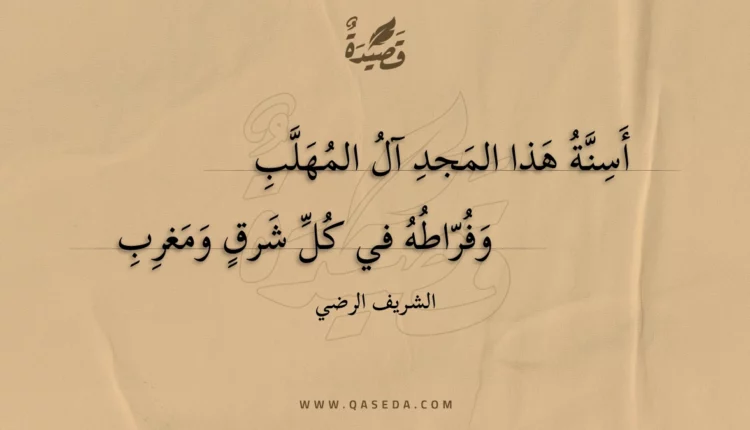 قَصِيْدَةٌ
أَسِنَّةُ هَذا المَجدِ آلُ المُهَلَّبِ
وَفُرّاطُهُ في كُلِّ شَرقٍ وَمَغرِبِ
الشريف الرضي
WWW.QASEDA.COM